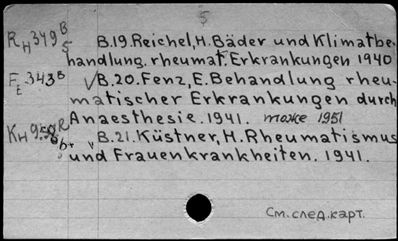 5
R H 349 B 5 B.19. Reichel, H. Bäder und Klimatbe-
handlung. rheumat. Erkrankungen 1940
F E 343 B √ B.20. Fenz, E. Behandlung rheu-
matischer Erkrankungen durch
Anaesthesie. 1941. тоже 1951
K H 958 R 6b. v B.21. Küstner, H. Rheumatismus
und Frauenkrankheiten. 1941.
См. след. карт.